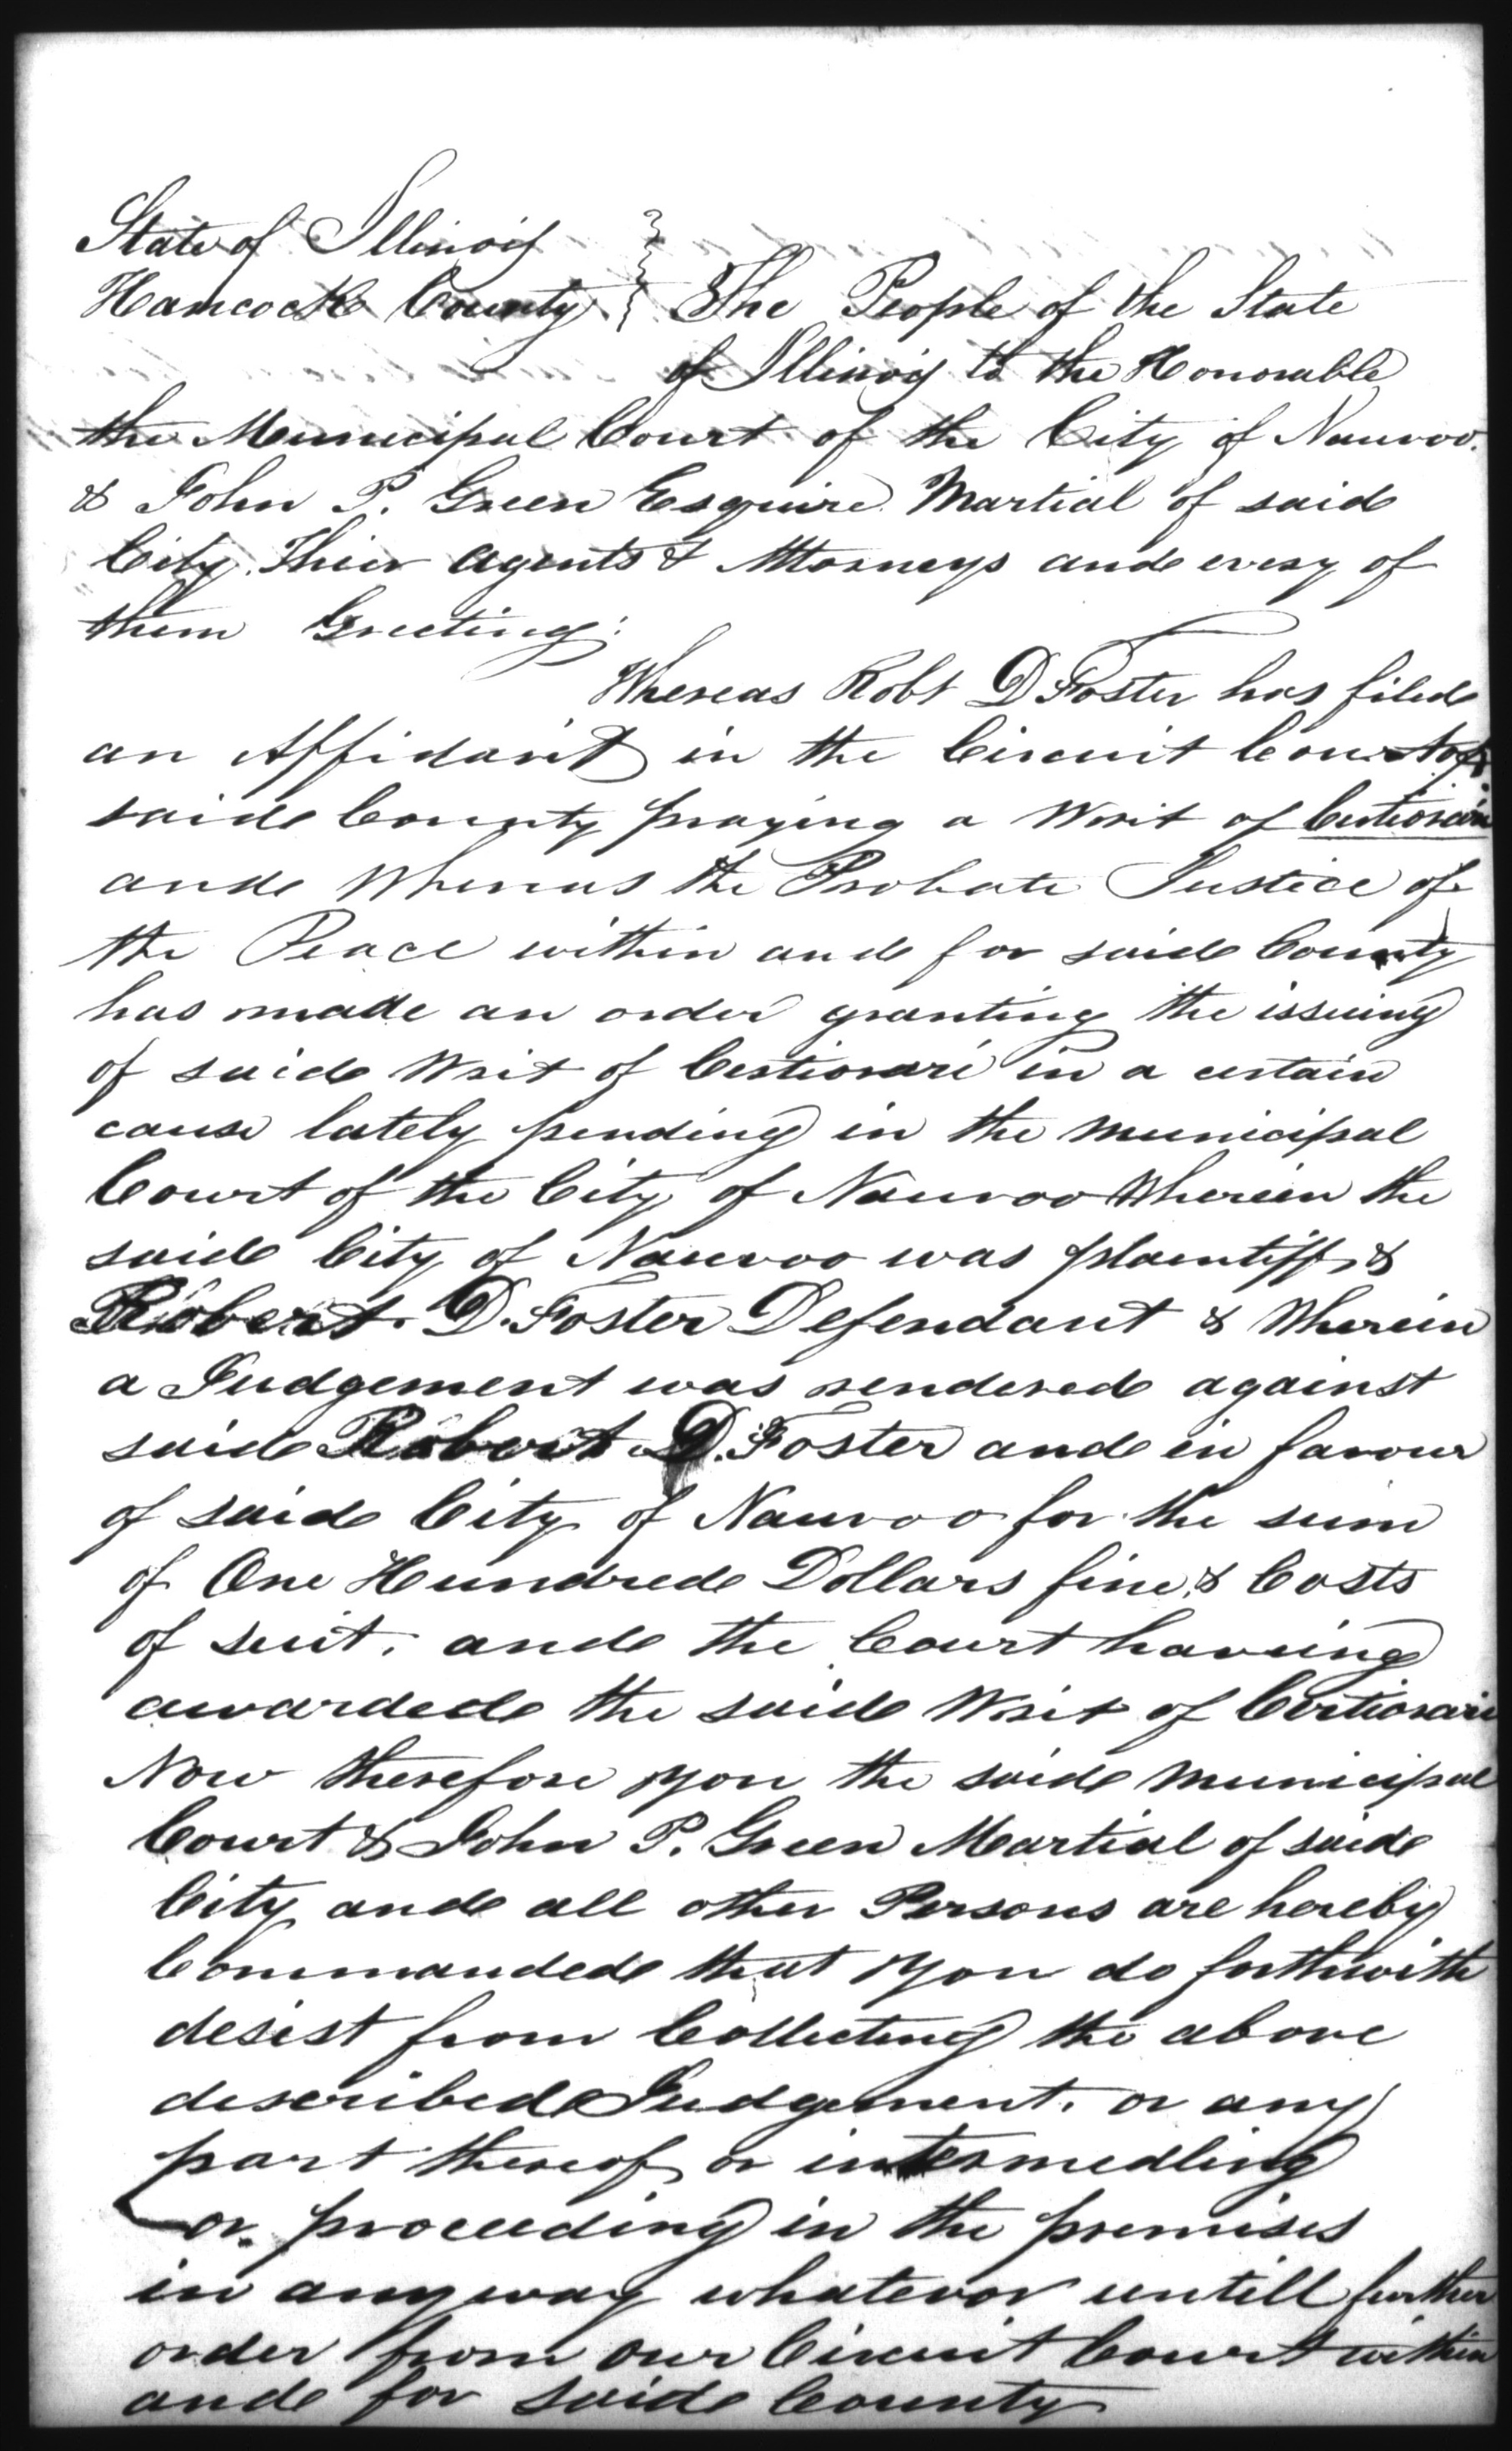 State of Illinois
Hancock County } The People of the State
of Illinois to the Honorable
the Municipal Court of the City of Nauvoo.
& John P. Green Esquire Martial of said
City. Their Agents & Attorneys and every of
them Greeting:
Whereas Robt D Foster has filed
an Affidavit in the Circuit Court of
said County praying a Writ of Certiorari
and Whereas the Probate Justice of
the Peace within and for said County
has made an order granting the issuing
of said Writ of Certiorari in a certain
cause lately pending in the Municipal
Court of the City of Nauvoo Wherein the
said City of Nauvoo was plaintiff &
Robert. D. Foster Defendant & Wherein
a Judgement was rendered against
said Robert D. Foster and in favour
of said City of Nauvoo for the sum
of One Hundred Dollars fine & Costs
of suit. and the Court having
awarded the said Writ of Certiorari
Now therefore you the said Municipal
Court & John P. Green Martial of said
City and all other Persons are hereby
Commanded that you do forthwith
desist from Collecting the above
described Judgement. or any
part thereof or intermedling
or proceeding in the premises
in any way whatever untill further
order from our Circuit Court within
and for said County